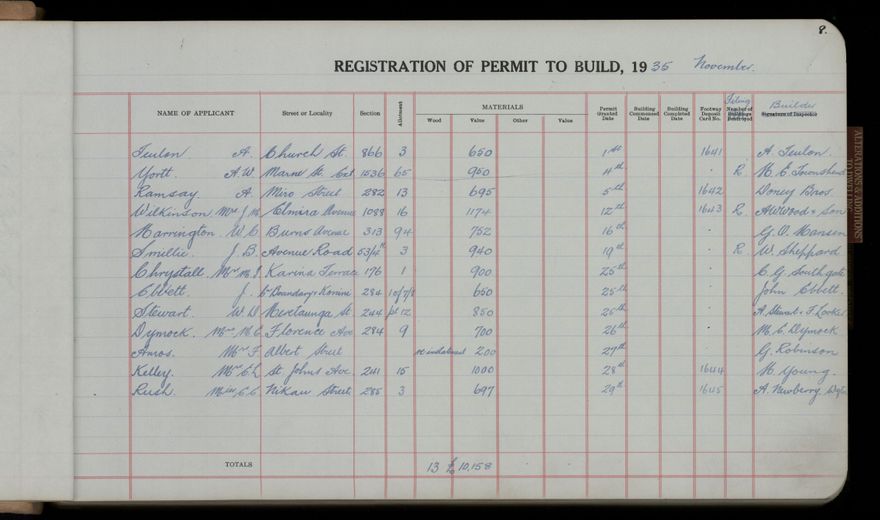 8.
REGISTRATION OF PERMIT TO BUILD, 1935 November.
NAME OF APPLICANT Street or Locality Section Allotment MATERIALS Wood Value Other Value Permit Granted Date Building Commenced Date Building Completed Date Footway Deposit Card No. Filing Number of Buildings Destroyed Builder Signature of Inspector
Teulon A. Church St. 866 3 650 1st 1641 A. Teulon.
A.W. Marne St. Ext 1536 65 950 4th . R. H. E. Townshend
Ramsay A. Miro Street 282 13 695 5th 1642 Doney Bros.
Wilkinson Mrs J. M. Elmira Avenue 1088 16 1174 12th 1643 R. A W Wood & Son
Harrington W. C. Burns Avenue 313 94 752 16th . G. V. Hansen
Smillie J. B. Avenue Road 53/4th 3 940 19th . R. W. Sheppard
Chrystall Mrs M. J. Karina Terrace 176 1 900 25th . C. G. Southgate
Ebbett J. Cr Boundary & Karine 284 10/7/8 650 25th . John Ebbett
Stewart. W. D. Heretaunga St. 244 pt 12 850 25th . A. Stewart & F Locker
Dymock. Mrs M. C. Florence Ave 284 9 700 26th . M. C. Dymock
Amos. Mrs F. Albert Street re instatement 200 27th . G. Robinson
Kelley. Mrs E. L. St. Johns Ave. 241 15 1000 28th 1644 H. Young.
Rush. Miss C. C. Nikau Street 285 3 697 29th 1645 A. Newberry
TOTALS 13 £ 10,158 . .
ALTERATIONS & ADDITIONS
TO DWELLING